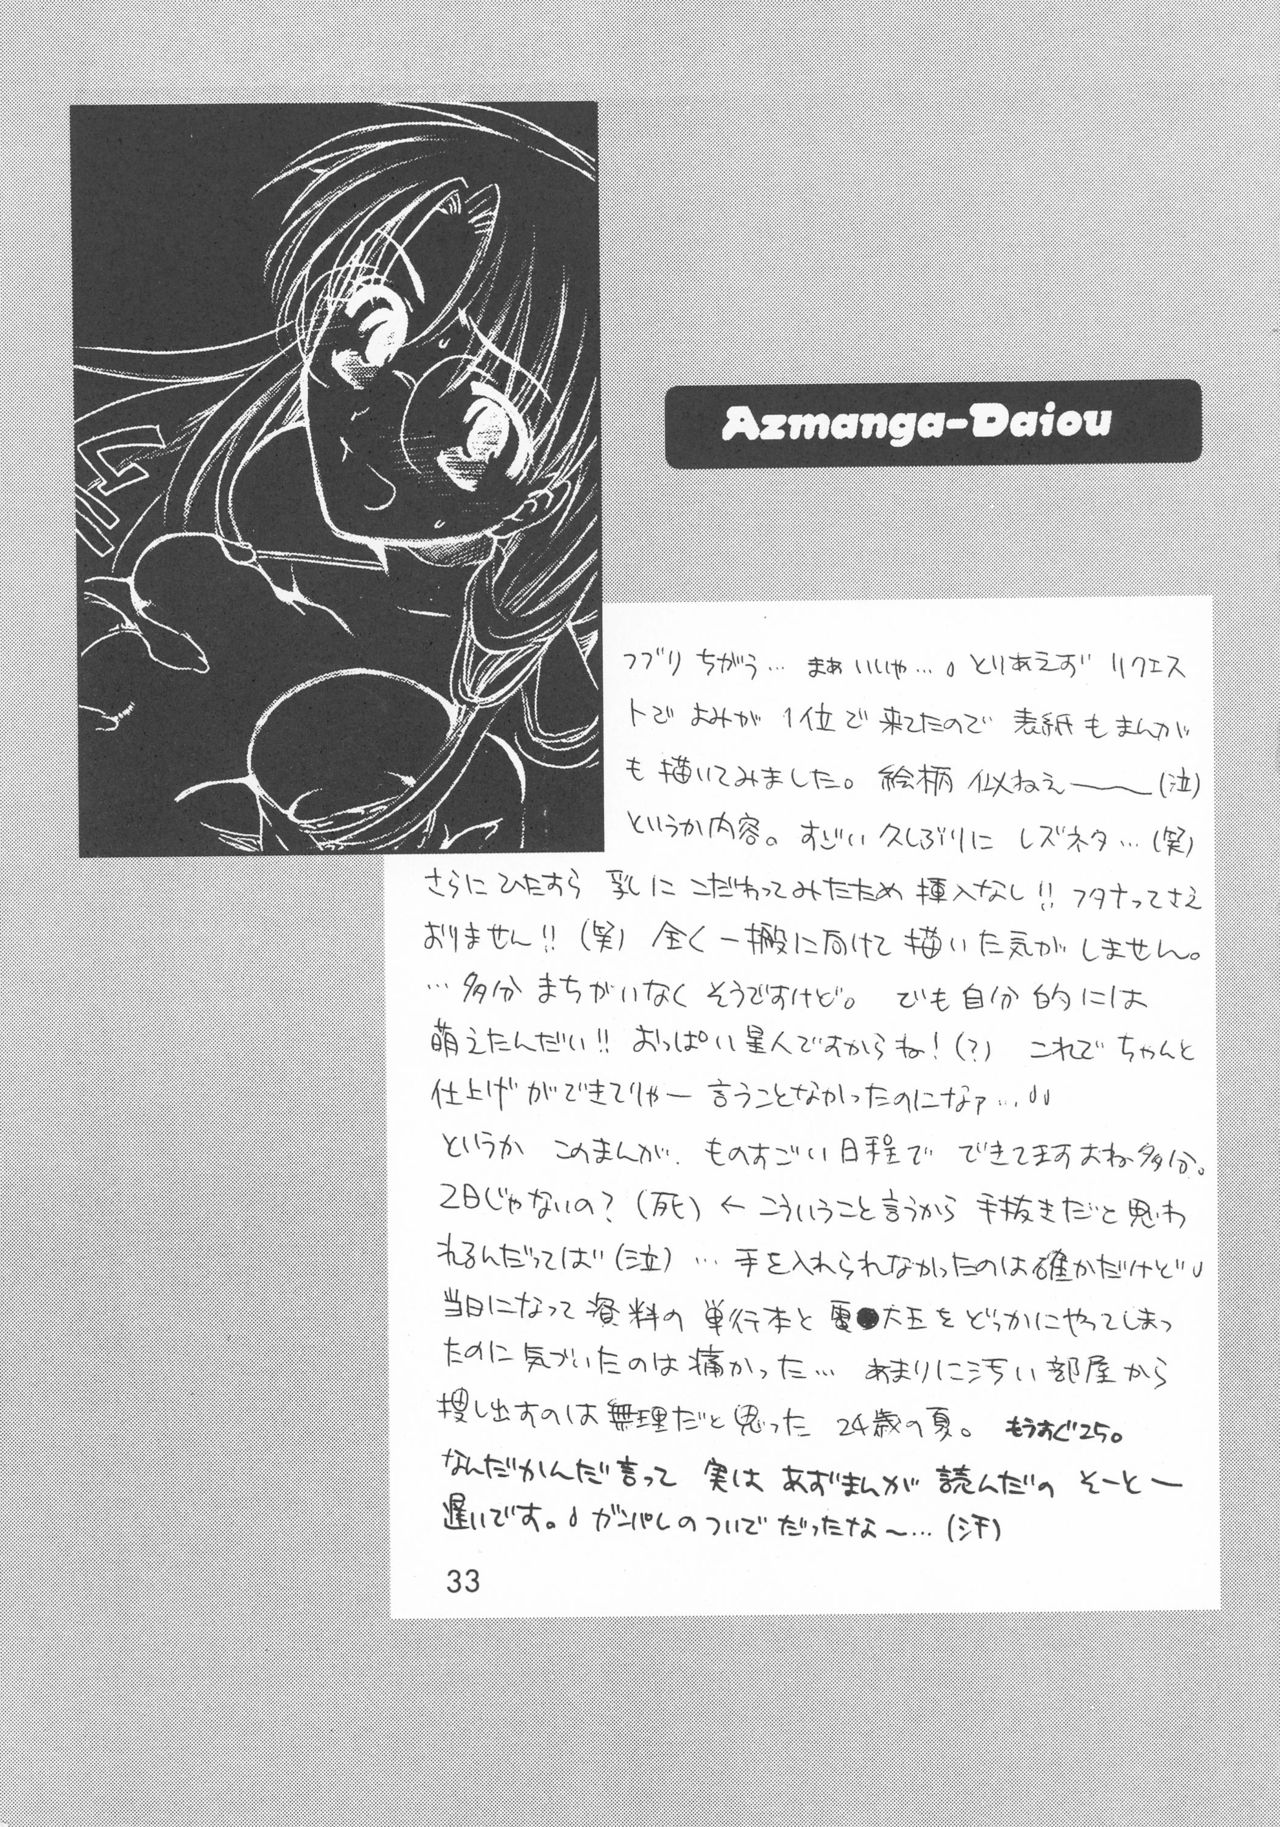 Azmanga-Daiou
ツブリ ちがう… まぁいいや… とりあえず リクエス
トで よみが 1位で来てたので 表紙もまんが
も描いてみました。絵柄 似ねえ――(泣)
というか内容。すごい久しぶりに レズネタ…(笑)
さらにひたすら 乳に こだわってみたため 挿入なし!! フタナってさえ
おりません!!(笑) 全く一般に向けて描いた気がしません。
…多分 まちがいなく そうですけど。 でも自分的には
萌えたんだい!! おっぱい星人ですからね!(?) これで ちゃんと
仕上げができてりゃー 言うことなかったのになァ…
というか このまんが、ものすごい日程で できてますよね多分。
2日じゃないの?(死)←こういうこと言うから 手抜きだと思わ
れるんだってば(泣) … 手を入れられなかったのは確かだけど
当日になって 資料の 単行本と 電●大王を どっかにやってしまっ
たのに気づいたのは痛かった… あまりに汚い部屋から
捜し出すのは無理だと思った 24歳の夏。 もうすぐ25。
なんだかんだ言って 実は あずまんが 読んだの そーとー
遅いです。ガンパレのついでだったな〜…(汗)
33